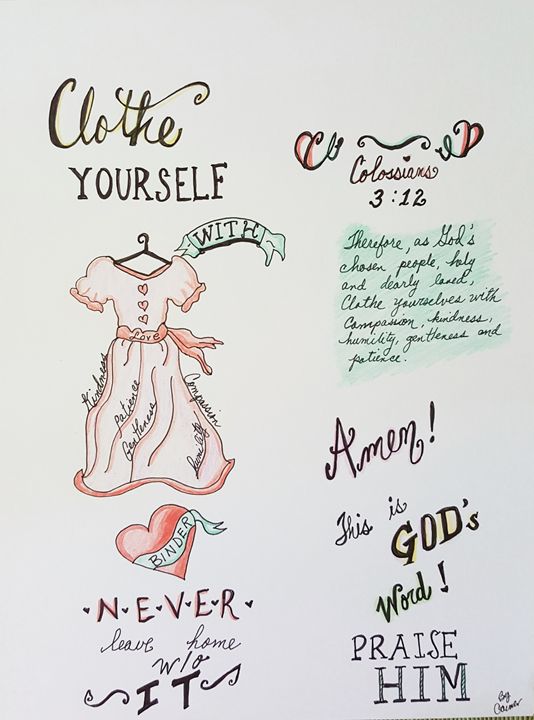 Clothe
YOURSELF
WITH
Love
Kindness
Patience
Gentleness
Compassion
humility
BINDER
N·E·V·E·R
leave home
w/o
IT
Colossians
3:12
Therefore, as God's
chosen people, holy
and dearly loved,
Clothe yourselves with
Compassion, kindness,
humility, gentleness and
patience.
Amen!
This is
GOD's
Word!
PRAISE
HIM
By